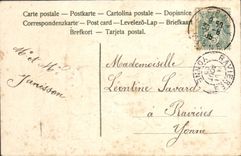 Carte postale - Postkarte - Cartolina postale - Dopisnice
Correspondenzkarte - Post card - Levelező-Lap - Briefkaart
Brefkort - Tarjeta postal.
Mademoiselle
Léontine Savard
à Ravières
Yonne
Mr et Me
Janesson
RAVIÈRES